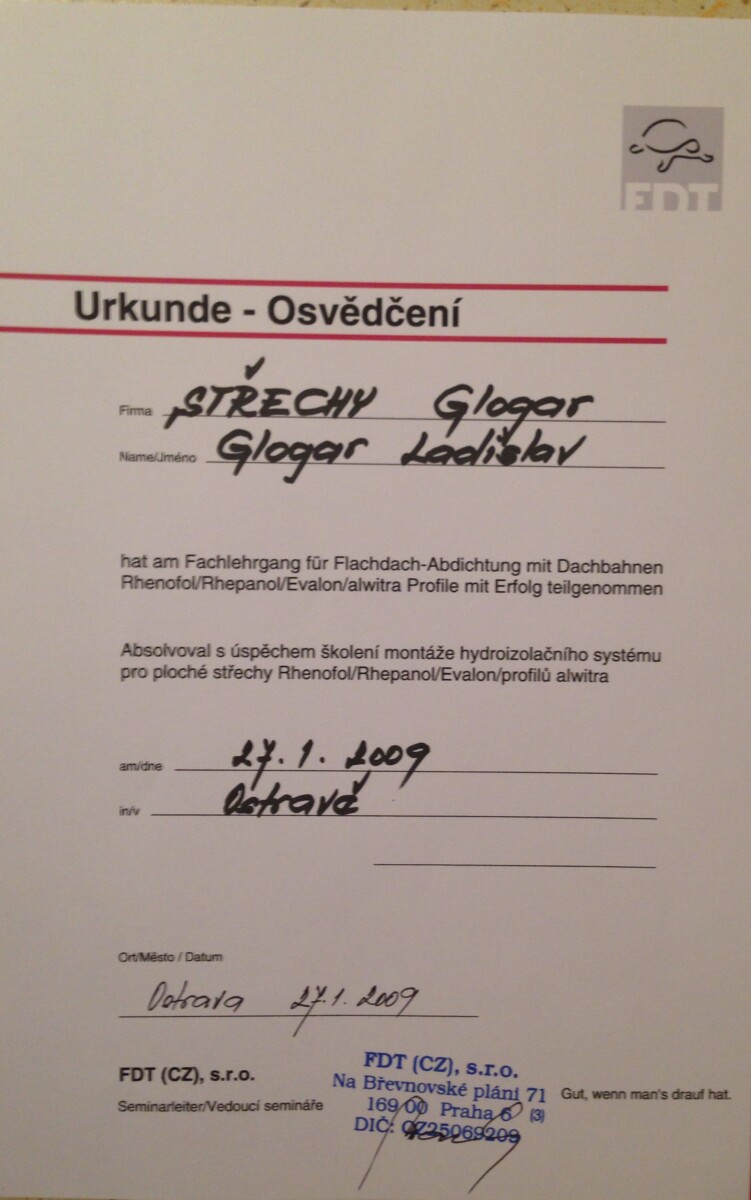 FDT
Urkunde - Osvědčení
Firma STŘECHY Glogar
Name/Jméno Glogar Ladislav
hat am Fachlehrgang für Flachdach-Abdichtung mit Dachbahnen
Rhenofol/Rhepanol/Evalon/alwitra Profile mit Erfolg teilgenommen
Absolvoval s úspěchem školení montáže hydroizolačního systému
pro ploché střechy Rhenofol/Rhepanol/Evalon/profilů alwitra
am/dne 27. 1. 2009
in/v Ostravě
Ort/Město / Datum
Ostrava 27.1. 2009
FDT (CZ), s.r.o.
Seminarleiter/Vedoucí semináře
FDT (CZ), s.r.o.
Na Břevnovské pláni 71
169 00 Praha 6 (3)
DIČ: CZ25069209
Gut, wenn man's drauf hat.